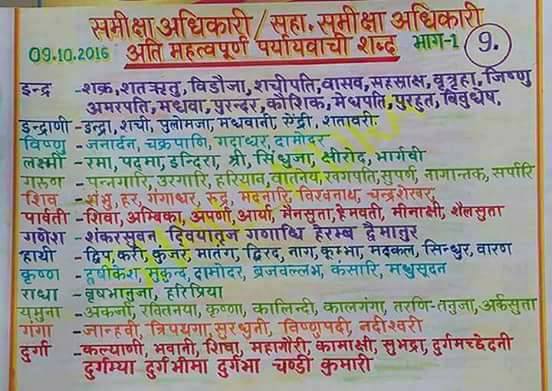 समीक्षा अधिकारी / सहा. समीक्षा अधिकारी
09.10.2016 अति महत्वपूर्ण पर्यायवाची शब्द भाग-1 9.
इन्द्र - शक्र, शतऋतु, विडौजा, शचीपति, वासव, सहस्राक्ष, वृत्रहा, जिष्णु
अमरपति, मधवा, पुरन्दर, कौशिक, मेधपति, पुरहुत, बिबुधेष,
इन्द्राणी - इन्द्रा, शची, पुलोमजा, मधवानी, ऐन्द्री, शतावरी
विष्णु - जनार्दन, चक्रपाणि, गदाधर, दामोदर
लक्ष्मी - रमा, पदमा, इन्दिरा, श्री, सिंधुजा, क्षीरोद, भार्गवी
गरुण - पन्नगारि, उरगारि, हरियान, वातनेय, खगपति, सुपर्ण, नागान्तक, सर्पारि
शिव - शंभु, हर, गंगाधर, रुद्र, मदनारि, विश्वनाथ, चन्द्रशेखर,
पार्वती - शिवा, अम्बिका, अपर्णा, आर्या, मैनसुता, हेमवती, मीनाक्षी, शैलसुता
गणेश - शंकरसुवन द्वियातृज गणाधि हेरम्ब द्वैमातुर
हाथी - द्विप, करी, कुंजर, मातंग, द्विरद, नाग, कुम्भा, मदकल, सिन्धुर, वारण
कृष्ण - हृषीकेश, मुकुन्द, दामोदर, ब्रजवल्लभ, कंसारि, मधुसूदन
राधा - वृषभानुजा, हरिप्रिया
यमुना - अर्कजा, रवितनया, कृष्णा, कालिन्दी, कालगंगा, तरणि-तनुजा, अर्कसुता
गंगा - जान्हवी, त्रिपथगा, सुरधुनी, विष्णुपदी, नदीश्वरी
दुर्गा - कल्याणी, भवानी, शिवा, महागौरी, कामाक्षी, सुभद्रा, दुर्गमच्छेदनी
दुर्गम्या दुर्गभीमा दुर्गभा चण्डी कुमारी